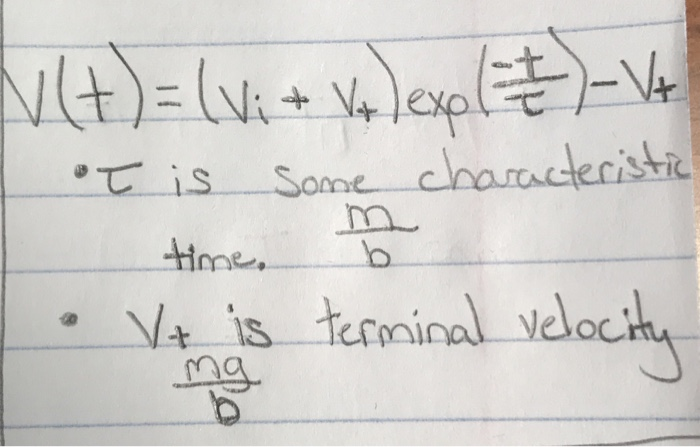 V(t) = (Vi + Vt) exp(-t/τ) - Vt
• τ is some characteristic
time. m/b
• Vt is terminal velocity
mg/b